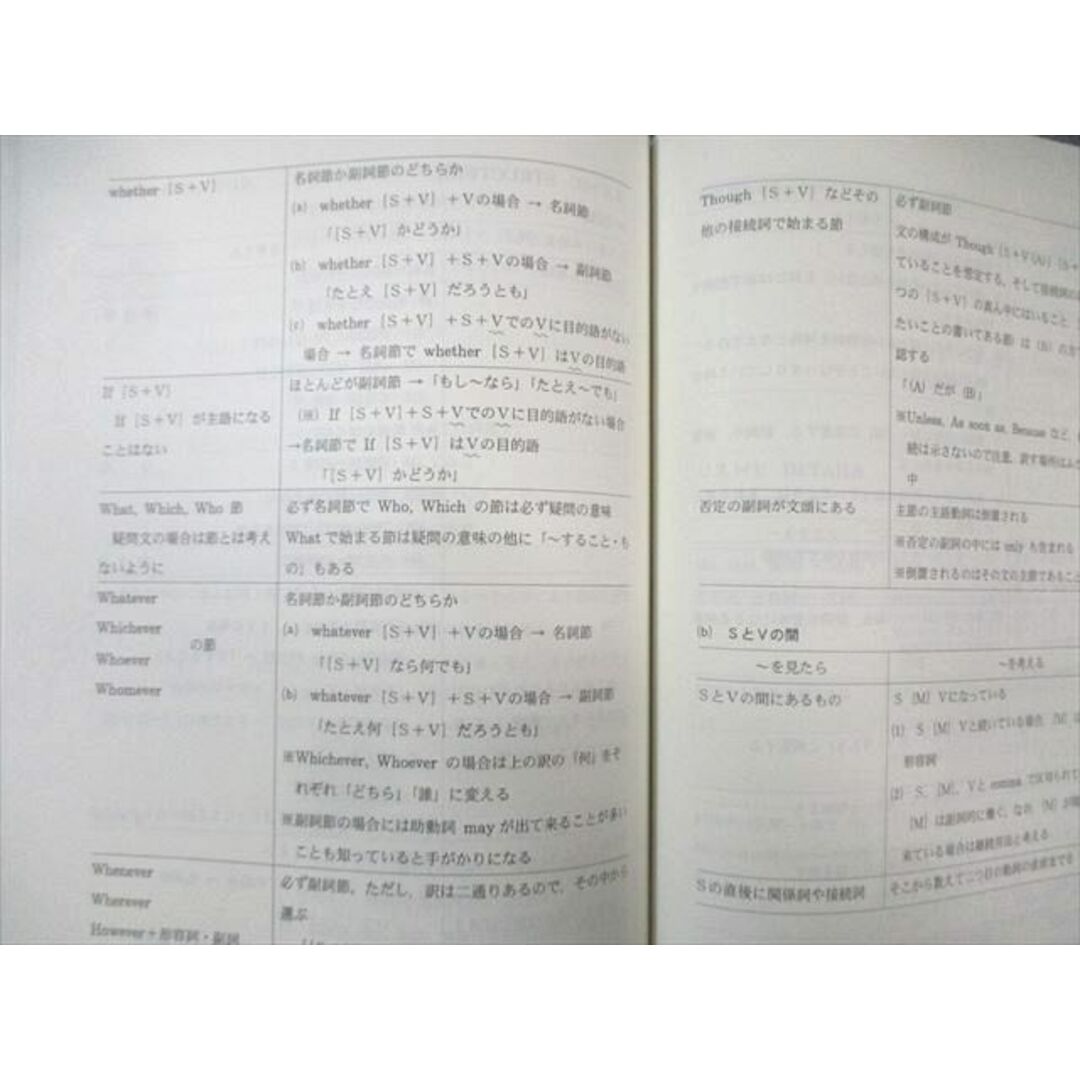 whether [S+V]
名詞節か副詞節のどちらか
(a) whether [S+V] +Vの場合 → 名詞節
「[S+V] かどうか」
(b) whether [S+V] +S+Vの場合 → 副詞節
「たとえ [S+V] だろうとも」
(c) whether [S+V] +S+VでのVに目的語がない
場合 → 名詞節で whether [S+V] はVの目的語
If [S+V]
If [S+V] が主語になる
ことはない
ほとんどが副詞節 →「もし〜なら」「たとえ〜でも」
(※) If [S+V]+S+VでのVに目的語がない場合
→名詞節で If [S+V] はVの目的語
「[S+V] かどうか」
What, Which, Who 節
疑問文の場合は節とは考え
ないように
必ず名詞節で Who, Which の節は必ず疑問の意味
Whatで始まる節は疑問の意味の他に「〜すること・も
の」もある
Whatever
Whichever
の節
Whoever
Whomever
名詞節か副詞節のどちらか
(a) whatever [S+V] +Vの場合 → 名詞節
「[S+V] なら何でも」
(b) whatever [S+V] +S+Vの場合 → 副詞節
「たとえ何 [S+V] だろうとも」
※Whichever, Whoever の場合は上の訳の「何」をそ
れぞれ「どちら」「誰」に変える
※副詞節の場合には助動詞 may が出て来ることが多い
ことも知っていると手がかりになる
Whenever
Wherever
However+形容詞・副詞
必ず副詞節,ただし,訳は二通りあるので,その中から
選ぶ
Though [S+V] などその
他の接続詞で始まる節
必ず副詞節
文の構成が Though [S+V(A)] [S+
ていることを想定する,そして接続詞の
つの [S+V] の真ん中にはいること,
たいことの書いてある節は (B) の方で
認する
「(A) だが (B)」
※Unless, As soon as, Because など,
続は示さないので注意,訳す場所はふた
中
否定の副詞が文頭にある
主節の主語動詞は倒置される
※否定の副詞の中には only も含まれる
※倒置されるのはその文の主節であること
(b) SとVの間
〜を見たら
〜を考える
SとVの間にあるもの
S [M] Vになっている
(1) S [M] Vと続いている場合 [M] は
形容詞
(2) S, [M], Vと comma で区切られて
[M] は副詞的に働く,なお [M] が
来ている場合は継続用法と考える
Sの直後に関係詞や接続詞
そこから数えて二つ目の動詞の直前までを